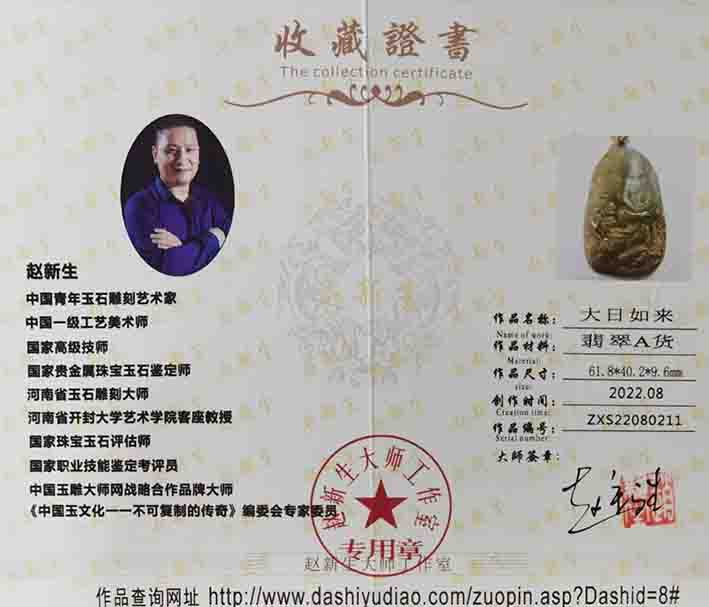 收藏證書
The collection certificate
赵新生
中国青年玉石雕刻艺术家
中国一级工艺美术师
国家高级技师
国家贵金属珠宝玉石鉴定师
河南省玉石雕刻大师
河南省开封大学艺术学院客座教授
国家珠宝玉石评估师
国家职业技能鉴定考评员
中国玉雕大师网战略合作品牌大师
《中国玉文化一一不可复制的传奇》编委会专家委员
作品名称： 大日如来
Name of work:
作品材料： 翡翠A货
Material:
作品尺寸： 61.8*40.2*9.6mm
size:
创作时间： 2022.08
Creation time:
作品编号： ZXS22080211
Serial number:
大师签章：
赵新生
赵新生大师工作室
专用章
赵新生大师工作室
作品查询网址 http://www.dashiyudiao.com/zuopin.asp?Dashid=8#